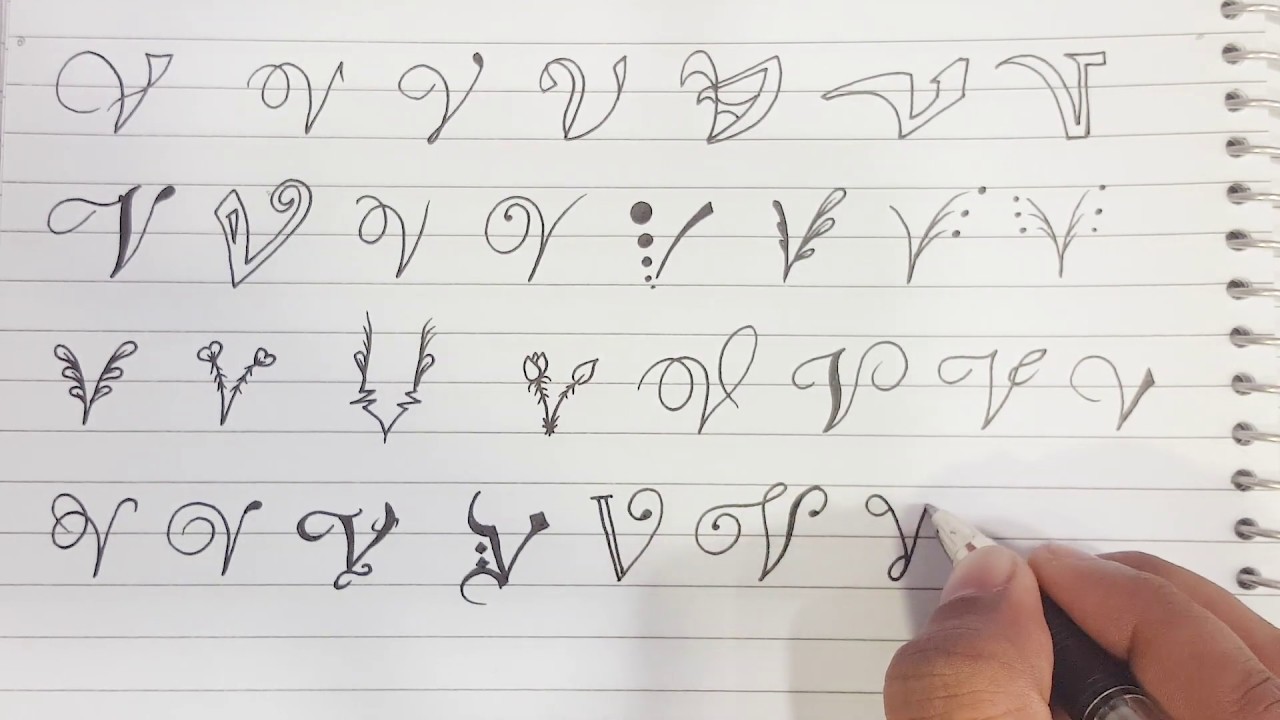 V V V V V V V
V V V V V V V V
V V V V V V V V
V V V V V V V